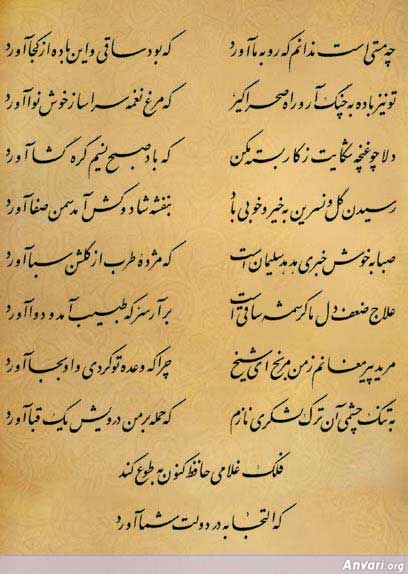 چه مستی است ندانم که رو به ما آورد که بود ساقی و این باده از کجا آورد
تو نیز باده به چنگ آر و راه صحرا گیر که مرغ نغمه سرا ساز خوش نوا آورد
دلا چو غنچه شکایت ز کار بسته مکن که باد صبح نسیم گره گشا آورد
رسیدن گل و نسرین به خیر و خوبی باد بنفشه شاد و کش آمد سمن صفا آورد
صبا به خوش خبری هدهد سلیمان است که مژده طرب از گلشن سبا آورد
علاج ضعف دل ما کرشمه ساقی است برآر سر که طبیب آمد و دوا آورد
مرید پیر مغانم ز من مرنج ای شیخ چرا که وعده تو کردی و او بجا آورد
به تنگ چشمی آن ترک لشکری نازم که حمله بر من درویش یک قبا آورد
فلک غلامی حافظ کنون به طوع کند
که التجا به در دولت شما آورد
Anvari.org